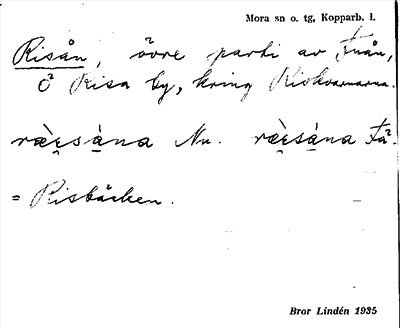 Mora sn o. tg, Kopparb. l.
Risån, övre parti av Fuån,
Ö Risa by, kring Riskvarnarna.
ræ̀ɛ̯sà̤na Nu. ræ̀ɛ̯sà̤na Få.
= Risbäcken.
Bror Lindén 1935